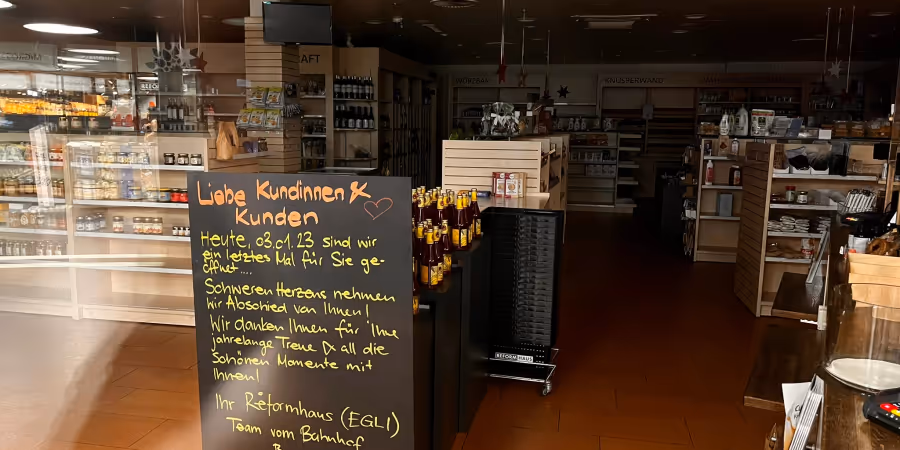 Liebe Kundinnen &
Kunden
Heute, 03.01.23 sind wir
ein letztes Mal für Sie ge-
öffnet....
Schweren Herzens nehmen
wir Abschied von Ihnen!
Wir danken Ihnen für Ihre
jahrelange Treue & all die
schönen Momente mit
Ihnen!
Ihr Reformhaus (EGLI)
Team vom Bahnhof
REFORMHAUS
KNUSPERWAND